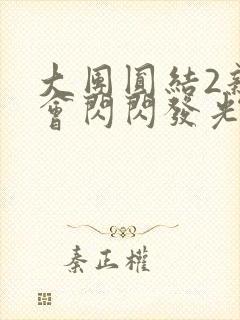 大團圓結2新
會閃閃發光
秦正權